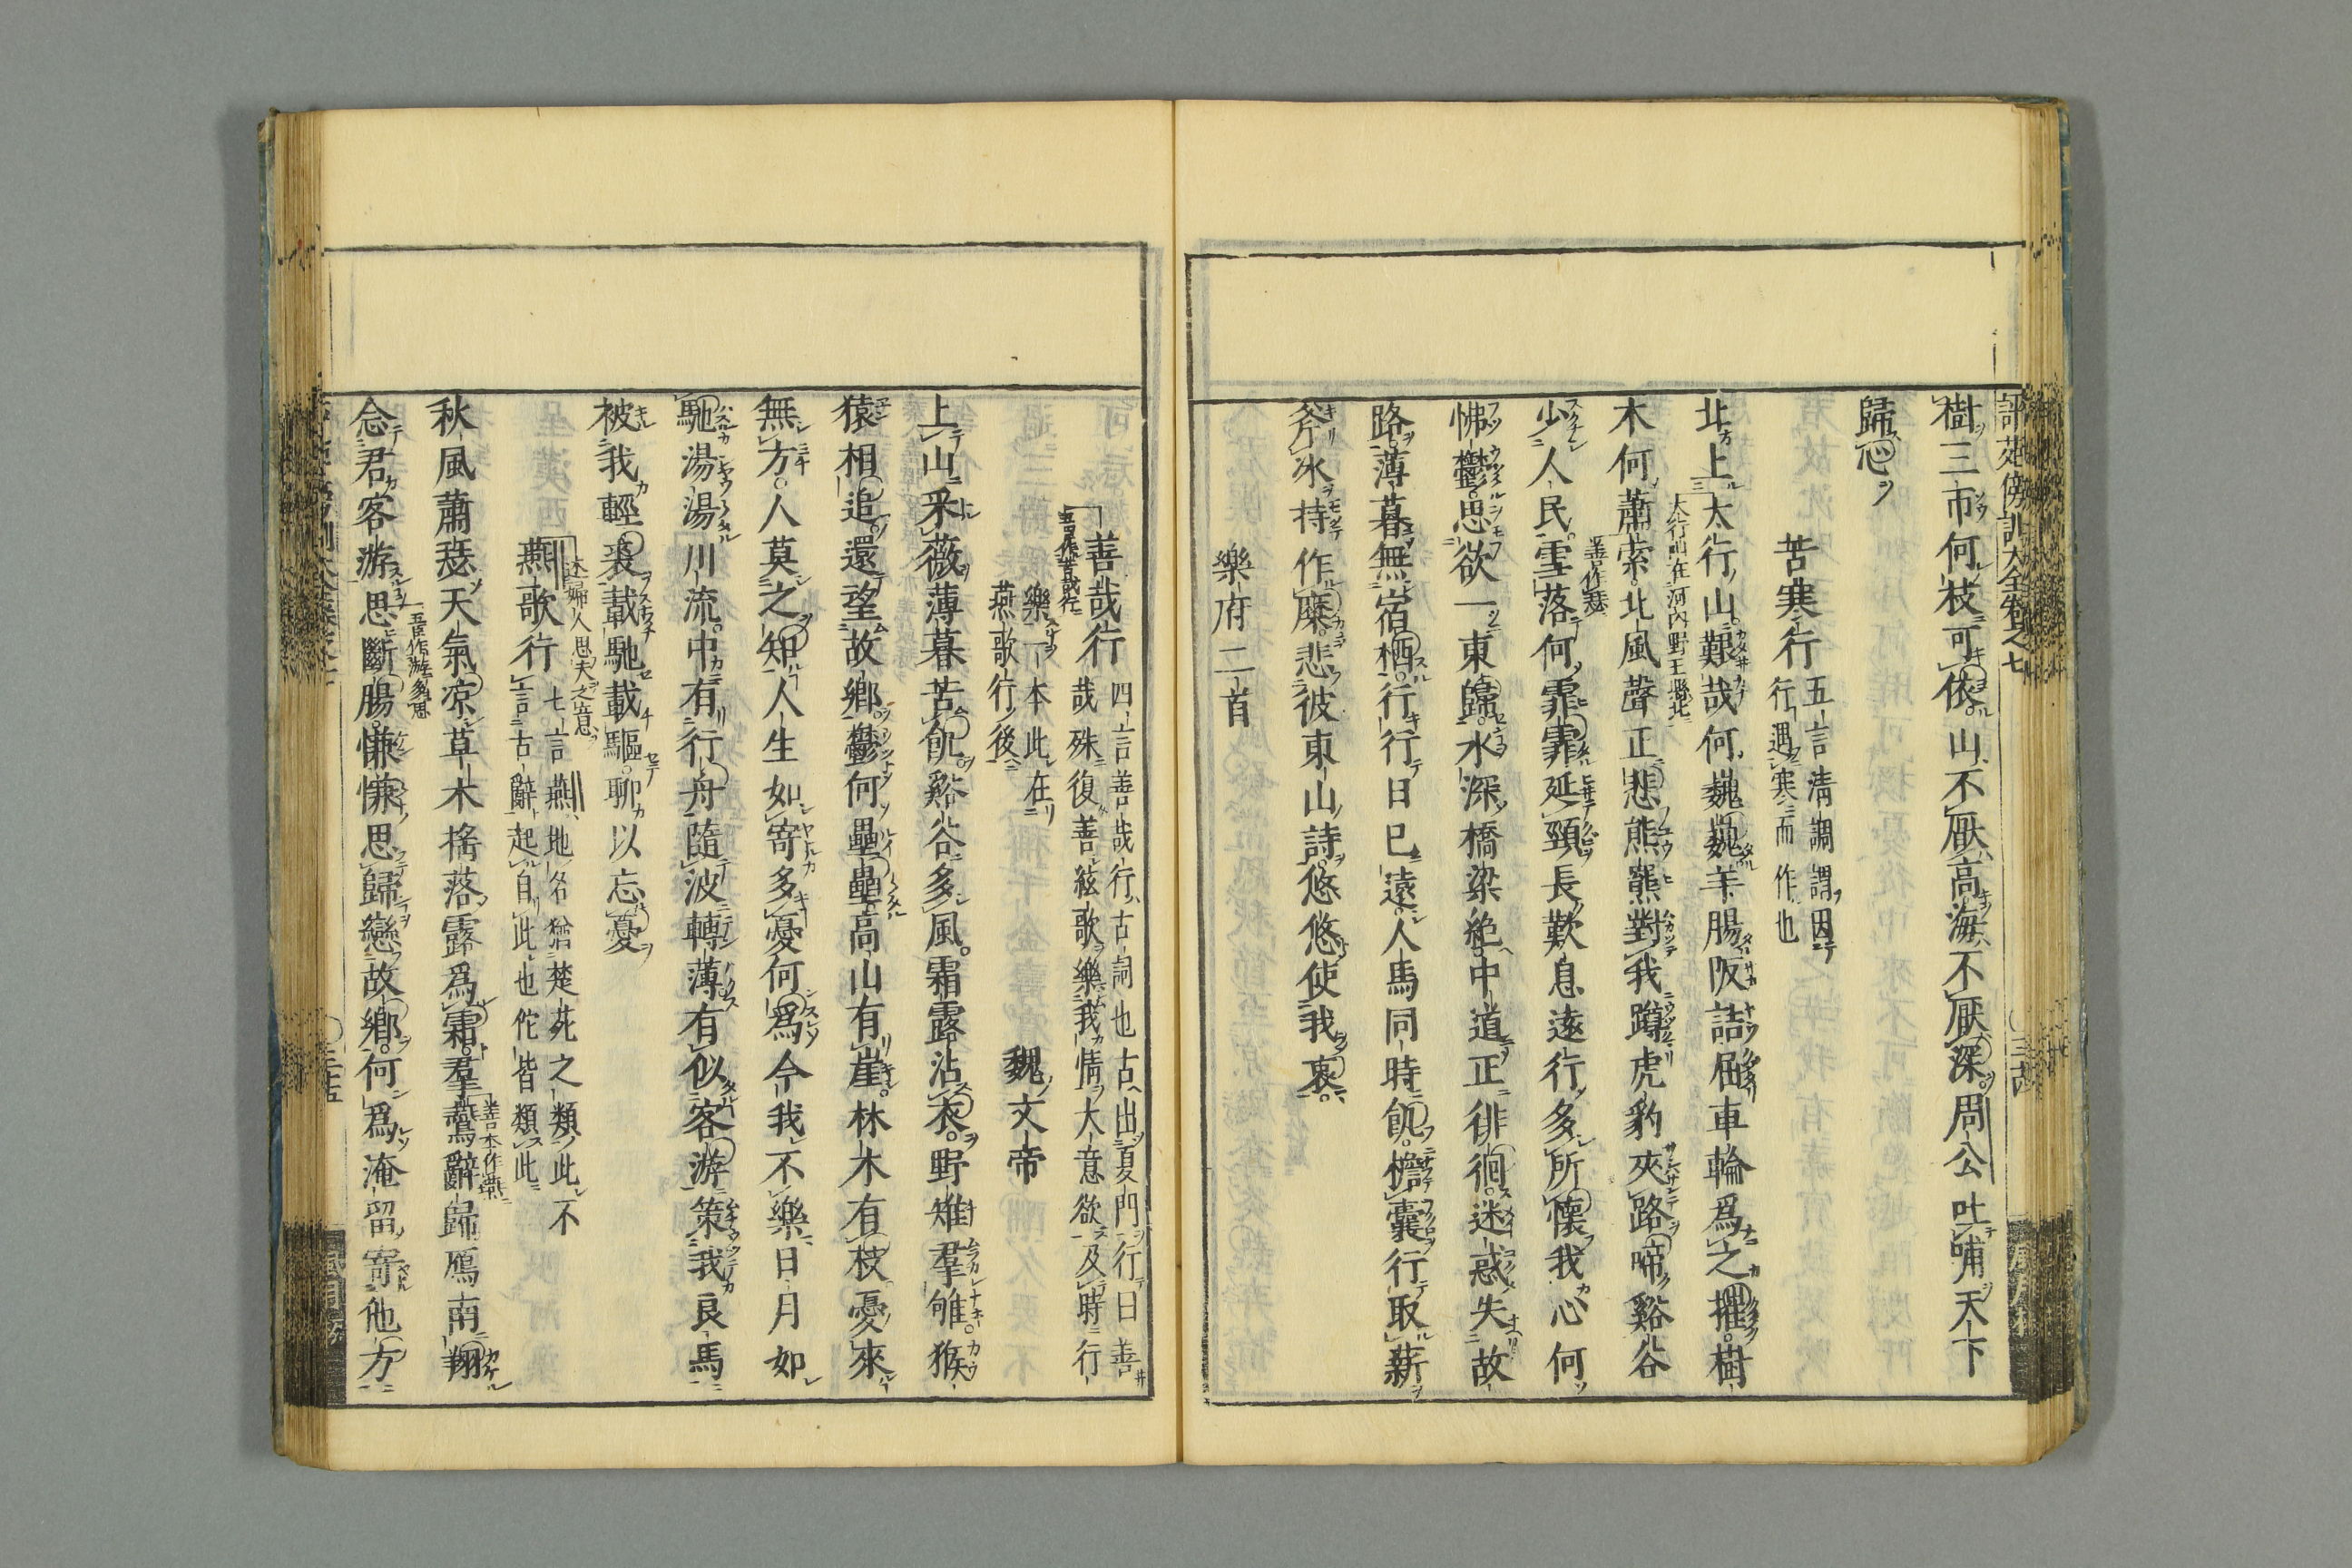 評苑傍訓大全卷之七
樹三帀何枝可依山不厭高海不厭深周公吐哺天下
歸心
苦寒行
五言淸調謂因
行遇寒而作也
太行山在河內野王縣北
北上太行山艱哉何巍巍羊腸阪詰屈車輪爲之摧樹
木何蕭索北風聲正悲熊羆對我蹲虎豹夾路啼谿谷
善作瑟
少人民雪落何霏霏延頸長歎息遠行多所懷我心何
怫鬱思欲一東歸水深橋梁絕中道正徘徊迷惑失故
路薄暮無宿栖行行日已遠人馬同時飢檐囊行取薪
斧冰持作糜悲彼東山詩悠悠使我哀
樂府二首
善哉行
四言善哉行古詞也古出夏門行日善
哉殊復善絃歌樂我情大意欲及時行
樂一本此在
燕歌行後
魏文帝
上山采薇薄暮苦飢谿谷多風霜露沾衣野雉羣雊猴
猿相追還望故鄉鬱何壘壘高山有崖林木有枝憂來
無方人莫之知人生如寄多憂何爲今我不樂日月如
馳湯湯川流中有行舟隨波轉薄有似客游策我良馬
被我輕裘載馳載驅聊以忘憂
述婦人思夫之意
燕歌行
七言燕地名猶楚苑之類此不
言古辭起自此也佗皆類此
秋風蕭瑟天氣凉草木搖落露爲霜羣鷰辭歸鴈南翔
善本作燕
念君客游思斷腸慊慊思歸戀故鄉何爲淹留寄他方
五臣作游多思